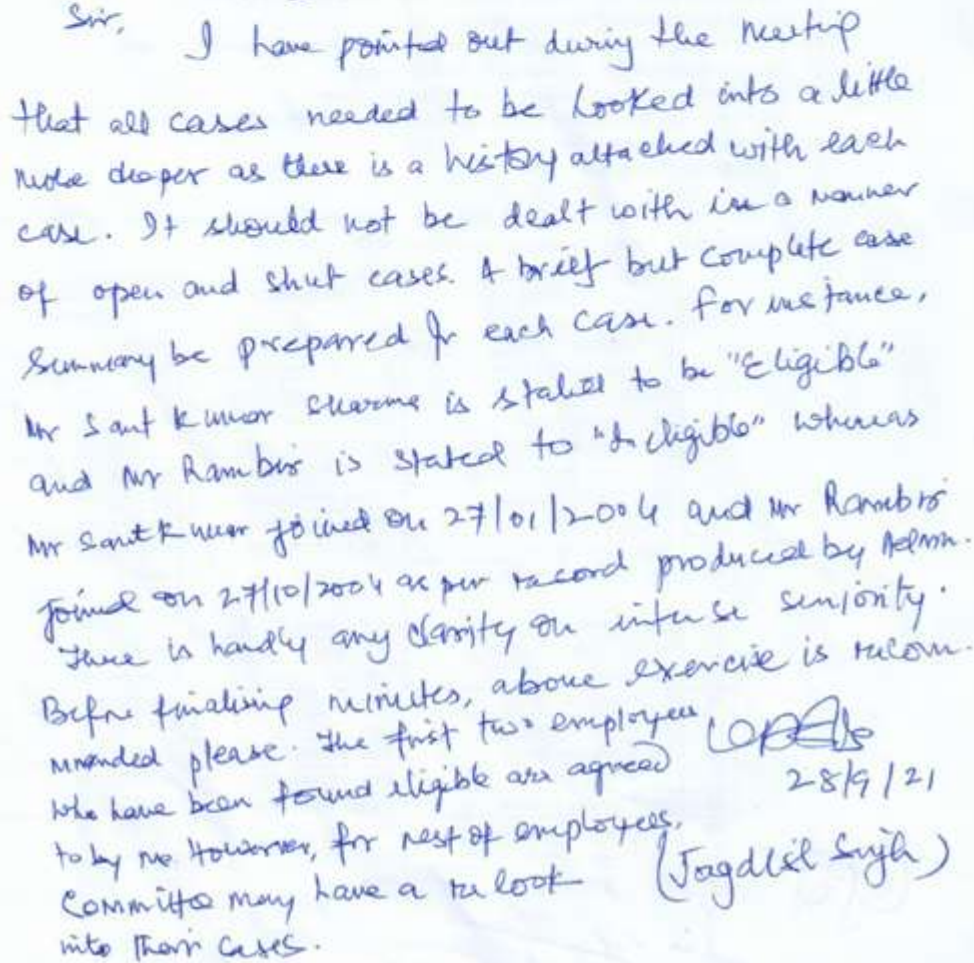 Sir,
I have pointed out during the meeting
that all cases needed to be looked into a little
more deeper as there is a history attached with each
case. It should not be dealt with in a manner
of open and shut cases. A brief but complete case
Summary be prepared for each case. For instance,
Mr Sant Kumar Sharma is stated to be "Eligible"
and Mr Rambir is stated to "Ineligible" whereas
Mr Sant Kumar joined on 27/01/2004 and Mr Rambir
joined on 27/10/2004 as per record produced by Admn.
There is hardly any clarity on inter se seniority.
Before finalising minutes, above exercise is recom-
mmended please. The first two employees
who have been found eligible are agreed
28/9/21
to by me. However, for rest of employees,
(Jagdish Singh)
Committee may have a relook
into their cases.